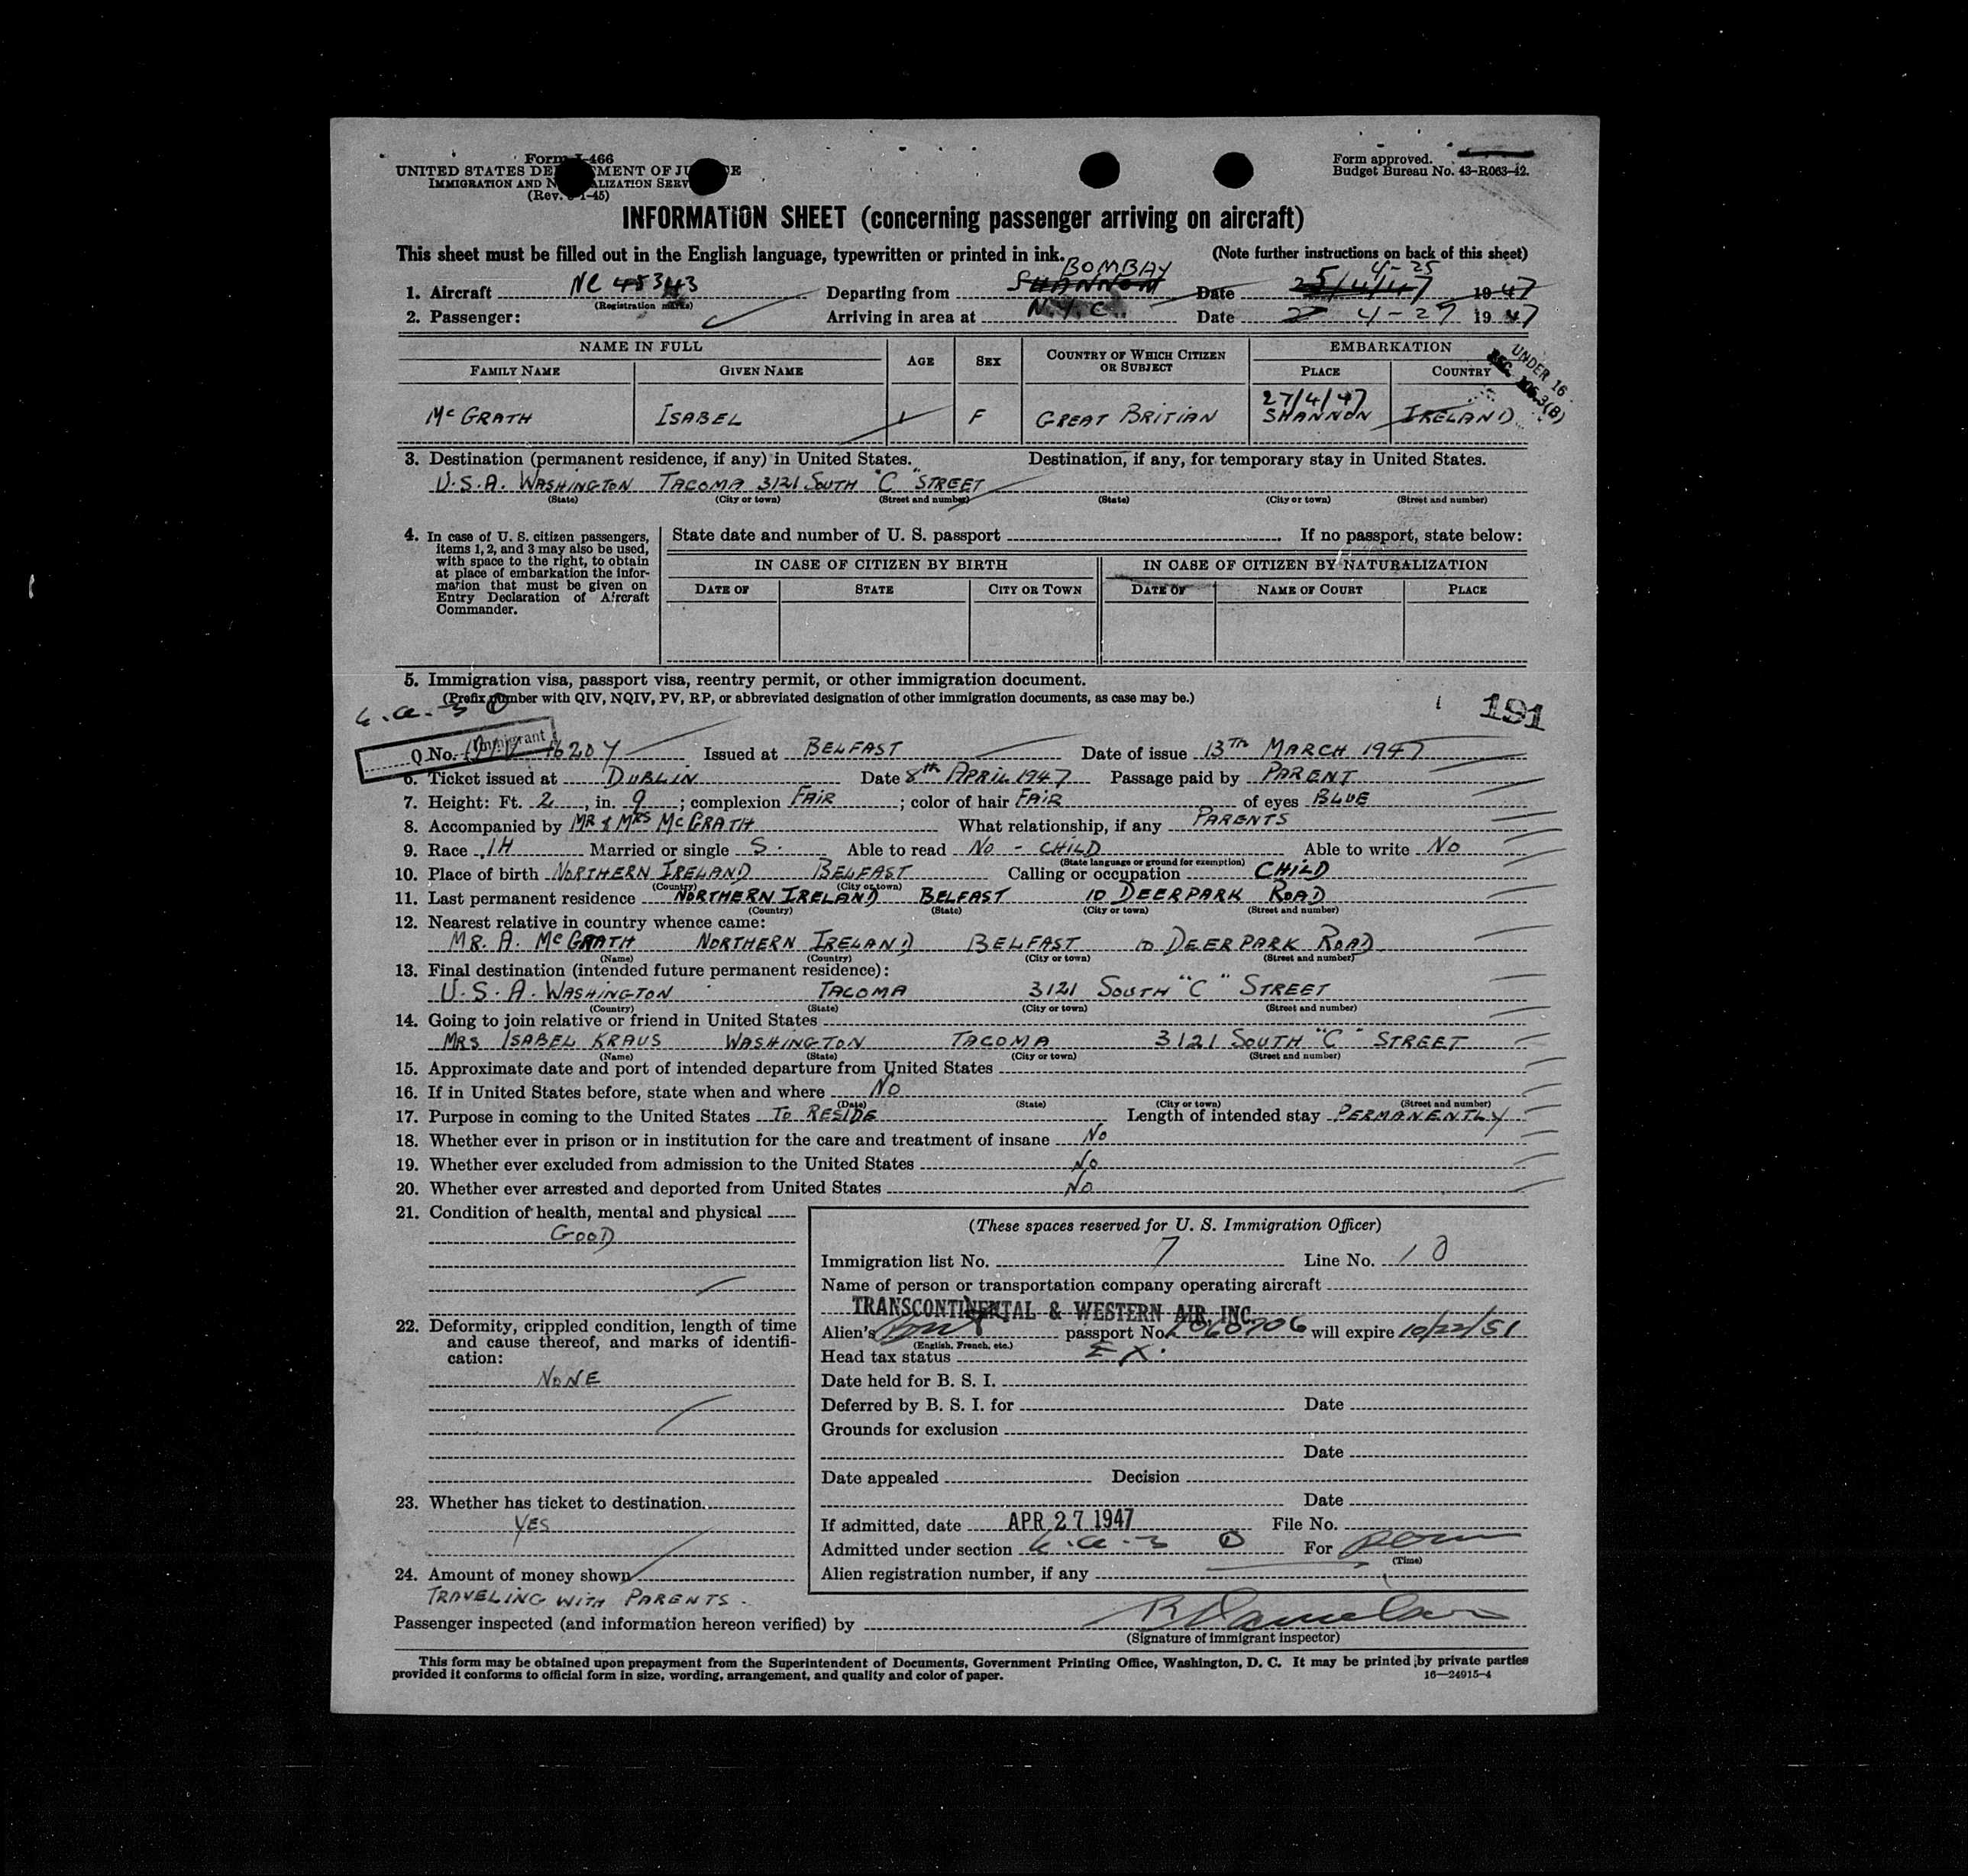 Form I-466
UNITED STATES DEPARTMENT OF JUSTICE
IMMIGRATION AND NATURALIZATION SERVICE
(Rev. -1-45)
Form approved.
Budget Bureau No. 43-R063-42.
INFORMATION SHEET (concerning passenger arriving on aircraft)
This sheet must be filled out in the English language, typewritten or printed in ink.
(Note further instructions on back of this sheet)
BOMBAY 4-25
1. Aircraft NC 45343 Departing from SHANNON Date 25/4/47 1947
(Registration marks)
2. Passenger: Arriving in area at N.Y.C. Date 4-27 1947
NAME IN FULL AGE SEX COUNTRY OF WHICH CITIZEN OR SUBJECT EMBARKATION
FAMILY NAME GIVEN NAME PLACE COUNTRY
UNDER 16
SEC. 105.3(B)
27/4/47
McGRATH ISABEL 1 F GREAT BRITIAN SHANNON IRELAND
3. Destination (permanent residence, if any) in United States. Destination, if any, for temporary stay in United States.
U.S.A. WASHINGTON TACOMA 3121 SOUTH "C" STREET
(State) (City or town) (Street and number) (State) (City or town) (Street and number)
4. In case of U. S. citizen passengers, items 1, 2, and 3 may also be used, with space to the right, to obtain at place of embarkation the information that must be given on Entry Declaration of Aircraft Commander.
State date and number of U. S. passport If no passport, state below:
IN CASE OF CITIZEN BY BIRTH IN CASE OF CITIZEN BY NATURALIZATION
DATE OF STATE CITY OR TOWN DATE OF NAME OF COURT PLACE
5. Immigration visa, passport visa, reentry permit, or other immigration document.
(Prefix number with QIV, NQIV, PV, RP, or abbreviated designation of other immigration documents, as case may be.)
191
Q Immigrant
No. Issued at BELFAST Date of issue 13TH MARCH 1947
6. Ticket issued at DUBLIN Date 8th APRIL 1947 Passage paid by PARENT
7. Height: Ft. 2, in. 9; complexion FAIR; color of hair FAIR of eyes BLUE
8. Accompanied by MR & MRS McGRATH What relationship, if any PARENTS
9. Race IH Married or single S. Able to read NO - CHILD Able to write NO
(State language or ground for exemption)
10. Place of birth NORTHERN IRELAND BELFAST Calling or occupation CHILD
(Country) (City or town)
11. Last permanent residence NORTHERN IRELAND BELFAST 10 DEERPARK ROAD
(Country) (State) (City or town) (Street and number)
12. Nearest relative in country whence came:
MR. A. McGRATH NORTHERN IRELAND BELFAST 10 DEERPARK ROAD
(Name) (Country) (City or town) (Street and number)
13. Final destination (intended future permanent residence):
U.S.A. WASHINGTON TACOMA 3121 SOUTH "C" STREET
(Country) (State) (City or town) (Street and number)
14. Going to join relative or friend in United States
MRS ISABEL KRAUS WASHINGTON TACOMA 3121 SOUTH "C" STREET
(Name) (State) (City or town) (Street and number)
15. Approximate date and port of intended departure from United States
16. If in United States before, state when and where NO
(Date) (State) (City or town) (Street and number)
17. Purpose in coming to the United States TO RESIDE Length of intended stay PERMANENTLY
18. Whether ever in prison or in institution for the care and treatment of insane NO
19. Whether ever excluded from admission to the United States NO
20. Whether ever arrested and deported from United States NO
21. Condition of health, mental and physical
GOOD
22. Deformity, crippled condition, length of time and cause thereof, and marks of identification:
NONE
23. Whether has ticket to destination.
YES
24. Amount of money shown
TRAVELING WITH PARENTS.
(These spaces reserved for U. S. Immigration Officer)
Immigration list No. 7 Line No. 10
Name of person or transportation company operating aircraft
TRANSCONTINENTAL & WESTERN AIR, INC.
Alien's passport No. will expire 10/22/51
(English, French, etc.)
Head tax status EX.
Date held for B. S. I.
Deferred by B. S. I. for Date
Grounds for exclusion
Date
Date appealed Decision
Date
If admitted, date APR 27 1947 File No.
Admitted under section For
(Time)
Alien registration number, if any
Passenger inspected (and information hereon verified) by
(Signature of immigrant inspector)
This form may be obtained upon prepayment from the Superintendent of Documents, Government Printing Office, Washington, D. C. It may be printed by private parties
provided it conforms to official form in size, wording, arrangement, and quality and color of paper. 16—24915-4